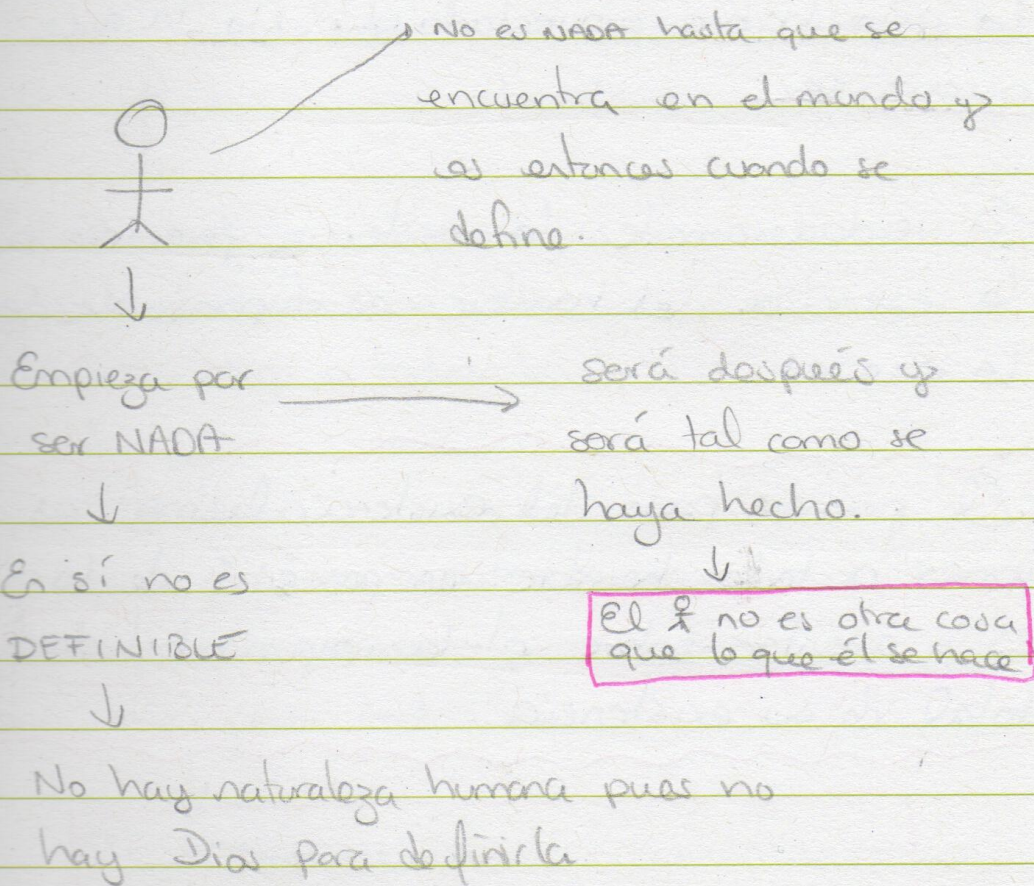 No es NADA hasta que se
encuentra en el mundo y
es entonces cuando se
define.
Empieza por
ser NADA
será después y
será tal como se
haya hecho.
En sí no es
DEFINIBLE
El no es otra cosa
que lo que él se hace
No hay naturaleza humana pues no
hay Dios para definirla